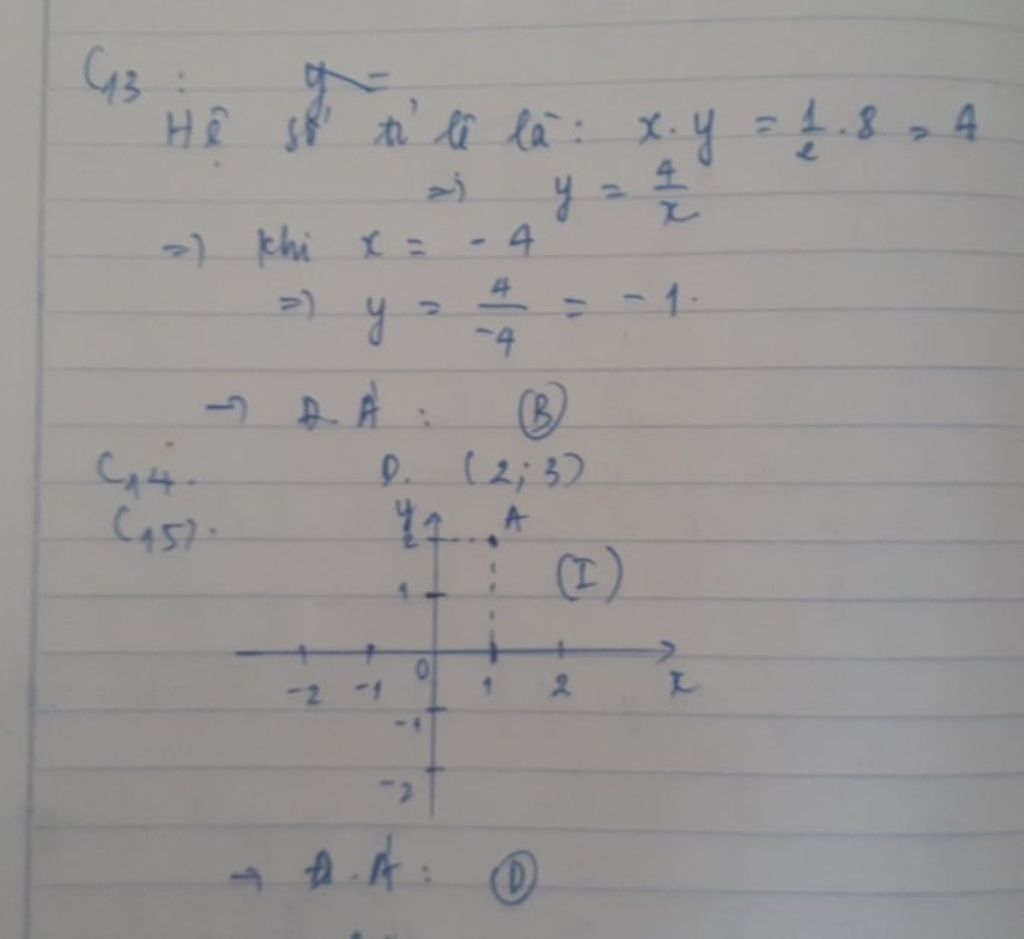 C13 : y =
Hệ số tỉ lệ là: x.y = 1/2 . 8 = 4
=> y = 4/x
=> khi x = - 4
=> y = 4/-4 = - 1.
→ Đ Á : (B)
C14. D. (2; 3)
C15).
y A
2
1 (I)
-2 -1 0 1 2 x
-1
-2
→ Đ.Á : (D)